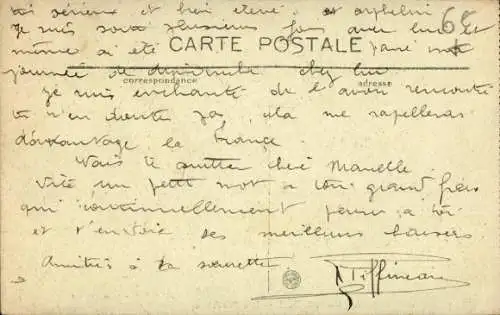 très sérieux et bien élevé et orphelin
Je suis sorti plusieurs fois avec lui et
même ai été passé une
CARTE POSTALE
journée de dimanche chez lui
correspondance
adresse
Je suis enchanté de l'avoir rencontré
tu n'en doute pas, cela me rapellera
davantage la France
Vais te quitter cher Marcelle
Vite un petit mot a ton grand frère
qui continuellement pense a toi
et t'envoie ses meilleurs baisers
Amitiés à ta